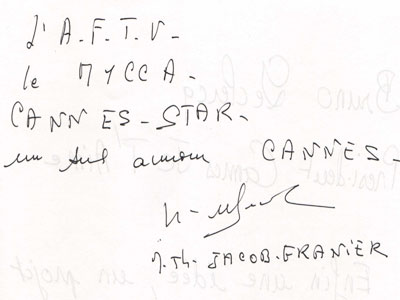 L'A.F.T.V-
le MYCCA-
CANNES-STAR-
un seul amour CANNES-
M.Th. JACOB-GRANIER